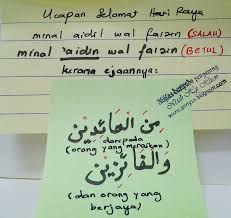 Ucapan Selamat Hari Raya
minal aidil wal faizin (SALAH)
minal 'aidin wal faizin (BETUL)
kerana ejaannya:
مِنَ الْعَائِدِيْنَ
daripada
(orang yang meraikan)
وَالْفَائِزِيْنَ
(dan orang yang
berjaya)